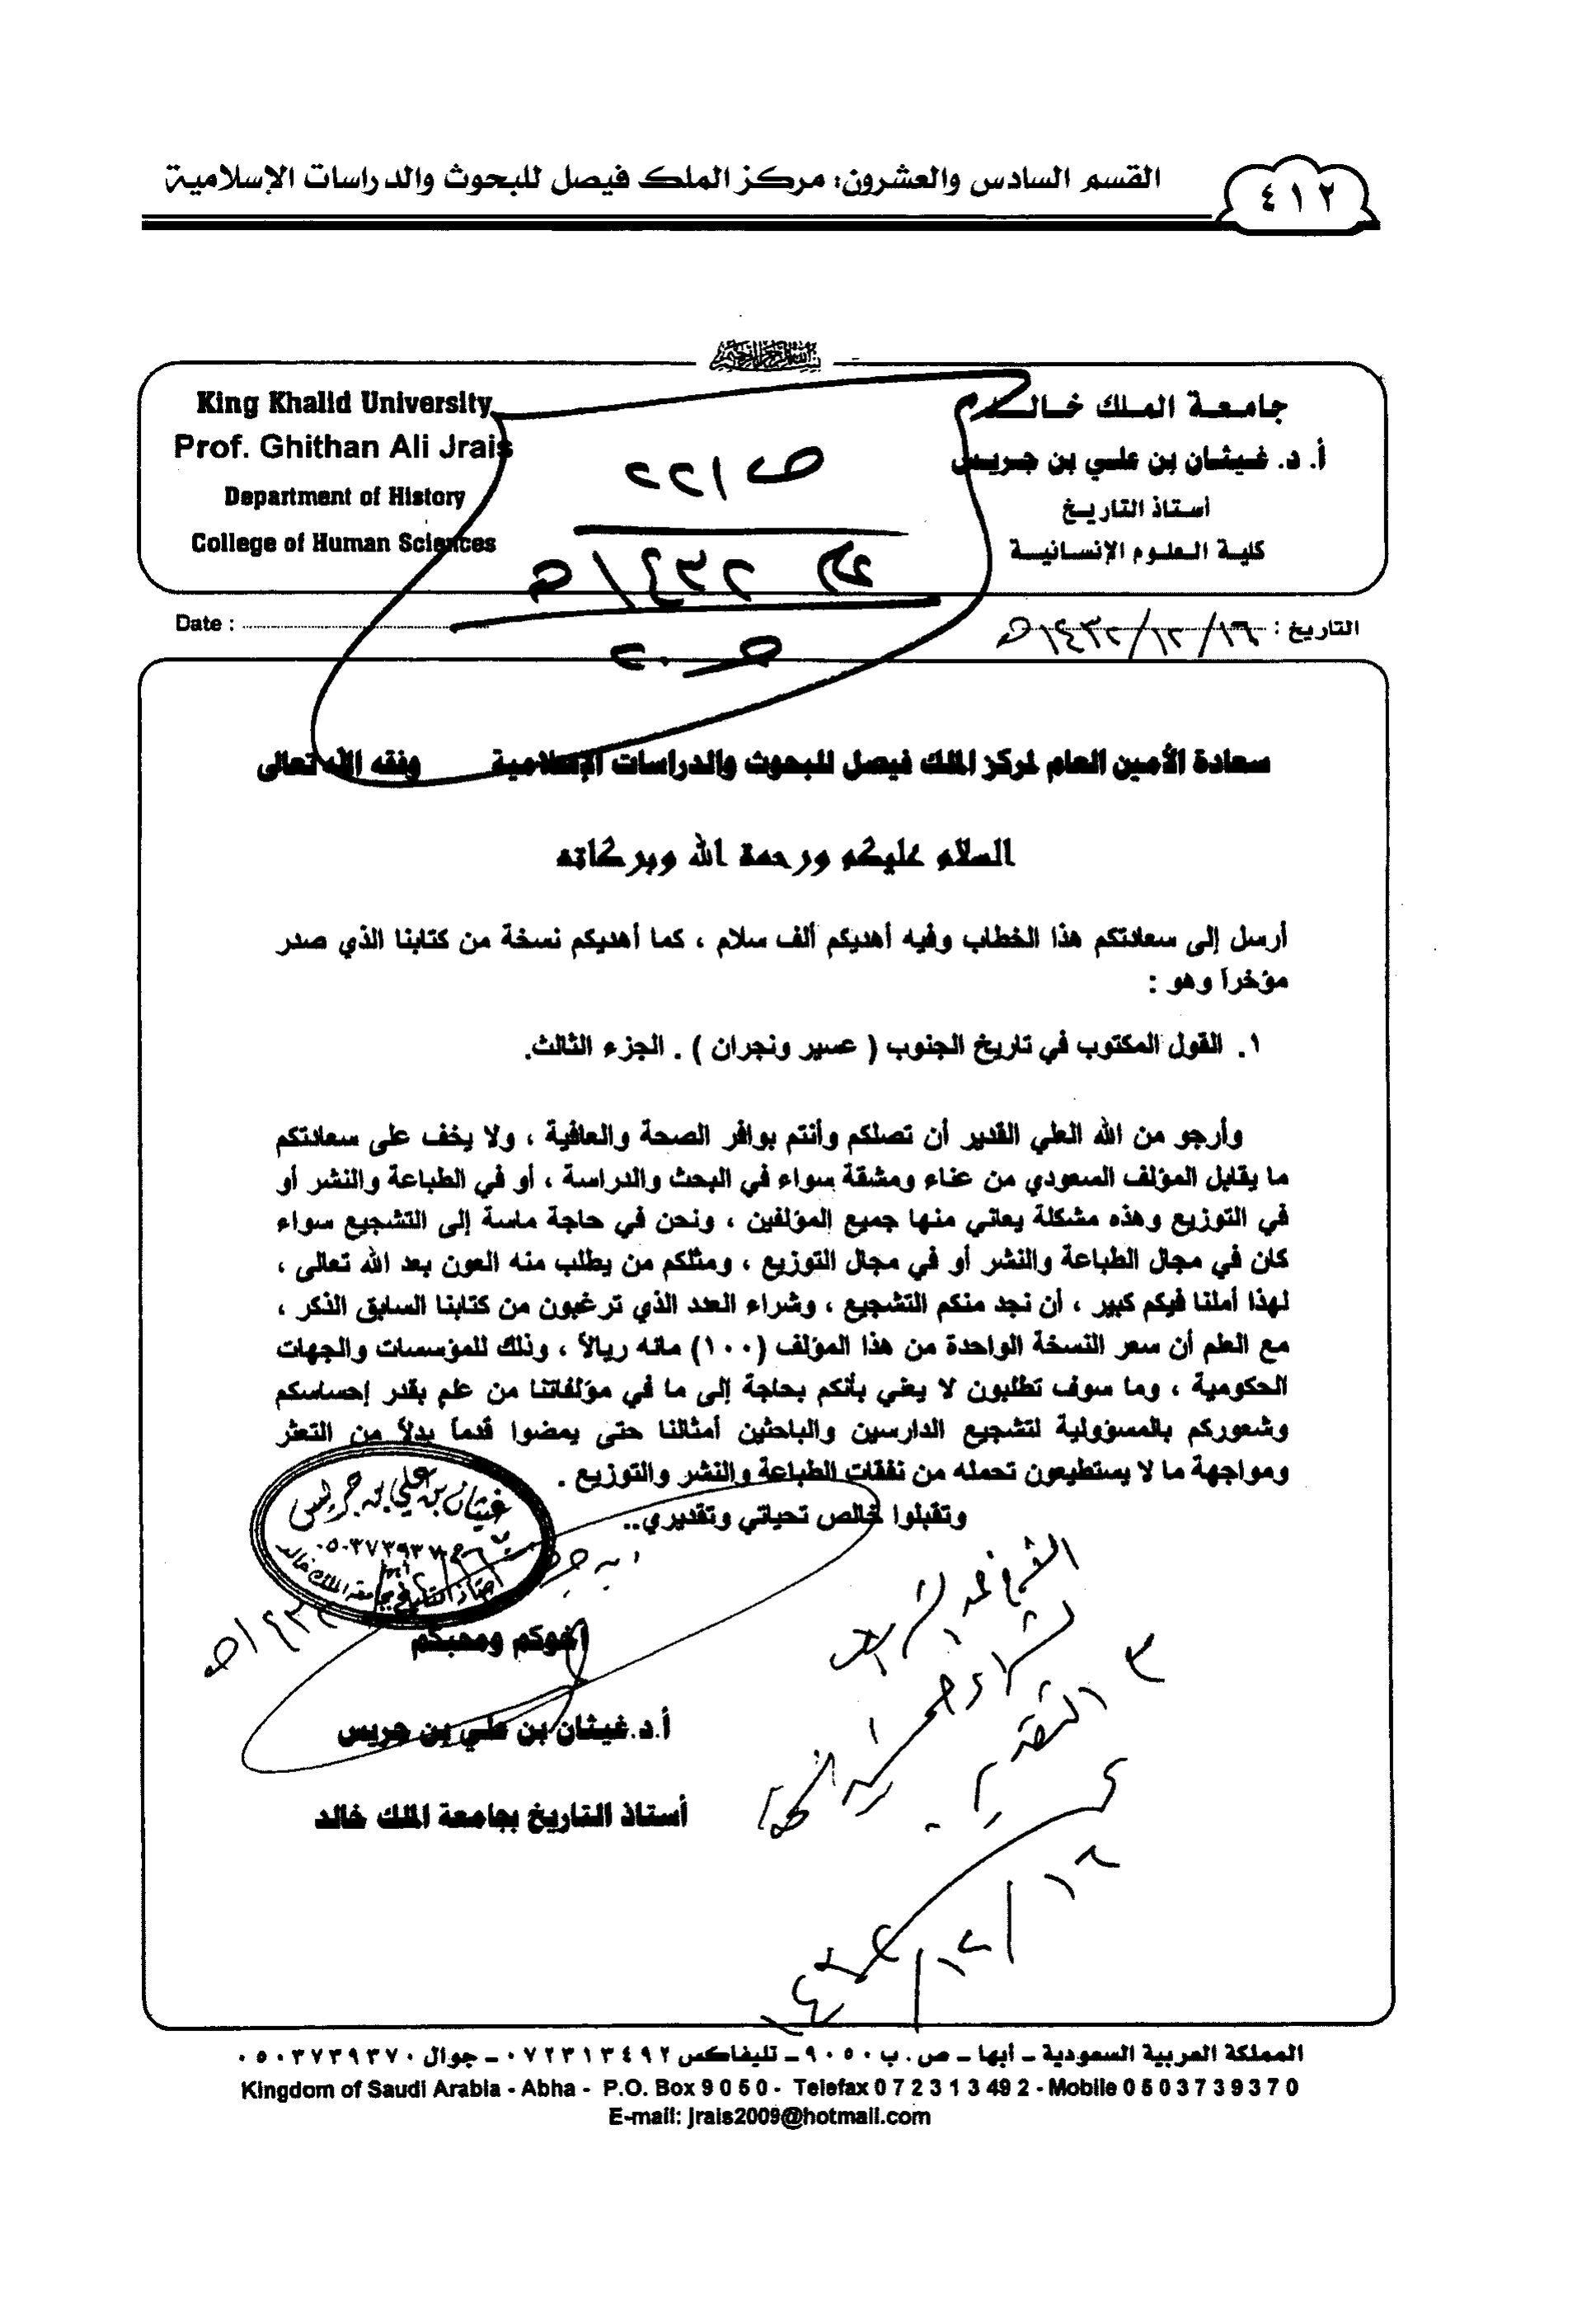 القسم السادس والعشرون: مركز الملك فيصل للبحوث والدراسات الإسلامية
٤١٢
جامعة الملك خالد
أ. د. غيثان بن علي بن جريس
أستاذ التاريخ
كلية العلوم الإنسانية
King Khalid University
Prof. Ghithan Ali Jrais
Department of History
College of Human Sciences
التاريخ : ١٤٣٢/١٢/١٦هـ
Date :
سعادة الأمين العام لمركز الملك فيصل للبحوث والدراسات الإسلامية وفقه الله تعالى
السلام عليكم ورحمة الله وبركاته
أرسل إلى سعادتكم هذا الخطاب وفيه أهديكم ألف سلام ، كما أهديكم نسخة من كتابنا الذي صدر
مؤخراً وهو :
١. القول المكتوب في تاريخ الجنوب ( عسير ونجران ) . الجزء الثالث.
وأرجو من الله العلي القدير أن تصلكم وأنتم بوافر الصحة والعافية ، ولا يخف على سعادتكم
ما يقابل المؤلف السعودي من عناء ومشقة سواء في البحث والدراسة ، أو في الطباعة والنشر أو
في التوزيع وهذه مشكلة يعاني منها جميع المؤلفين ، ونحن في حاجة ماسة إلى التشجيع سواء
كان في مجال الطباعة والنشر أو في مجال التوزيع ، ومثلكم من يطلب منه العون بعد الله تعالى ،
لهذا أملنا فيكم كبير ، أن نجد منكم التشجيع ، وشراء العدد الذي ترغبون من كتابنا السابق الذكر ،
مع العلم أن سعر النسخة الواحدة من هذا المؤلف (١٠٠) مائه ريالاً ، وذلك للمؤسسات والجهات
الحكومية ، وما سوف تطلبون لا يعني بأنكم بحاجة إلى ما في مؤلفاتنا من علم بقدر إحساسكم
وشعوركم بالمسؤولية لتشجيع الدارسين والباحثين أمثالنا حتى يمضوا قدماً بدلاً من التعثر
ومواجهة ما لا يستطيعون تحمله من نفقات الطباعة والنشر والتوزيع .
وتقبلوا خالص تحياتي وتقديري..
غيثان بن علي بن جريس
٠٥٠٣٧٣٩٣٧٠
أستاذ التاريخ بجامعة الملك خالد
أخوكم ومحبكم
أ.د.غيثان بن علي بن جريس
أستاذ التاريخ بجامعة الملك خالد
المملكة العربية السعودية ـ أبها ـ ص. ب ٩٠٥٠ ـ تليفاكس ٠٧٢٣١٣٤٩٢ ـ جوال ٠٥٠٣٧٣٩٣٧٠
Kingdom of Saudi Arabia - Abha - P.O. Box 9 0 5 0 - Telefax 0 7 2 3 1 3 49 2 - Mobile 0 5 0 3 7 3 9 3 7 0
E-mail: jrais2009@hotmail.com